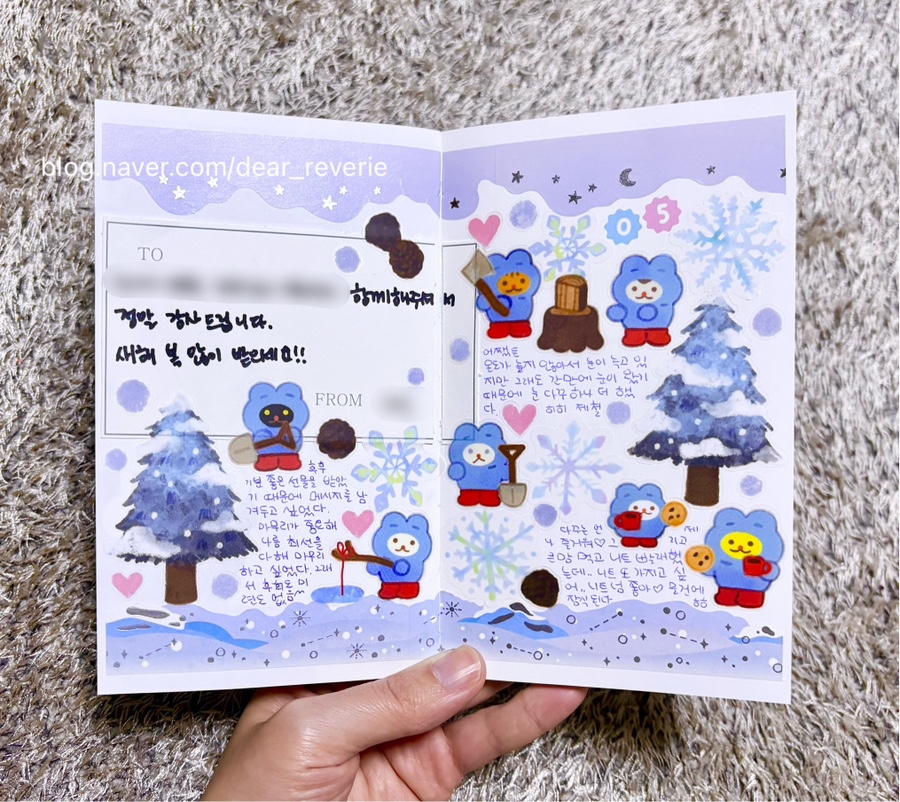 blog.naver.com/dear_reverie
TO
함께해주셔서
정말 감사드립니다.
새해 복 많이 받으세요!!
FROM
흑흑
기분 좋은 선물을 받았
기 때문에 메시지를 남
겨두고 싶었다.
마무리가 중요해
나름 최선을
다해 마무리
하고 싶었다. 그래
서 후회도 미
련도 없음~
05
어쨌든
온도가 높지 않아서 눈이 녹고 있
지만 그래도 간만에 눈이 왔기
때문에 눈 다꾸 하나 더 했
다. 히히 제철
다꾸는 언제
나 즐거워♡
먹고 니트
는데.. 니트 또 가지고 싶
어.. 니트 넘 좋아♡